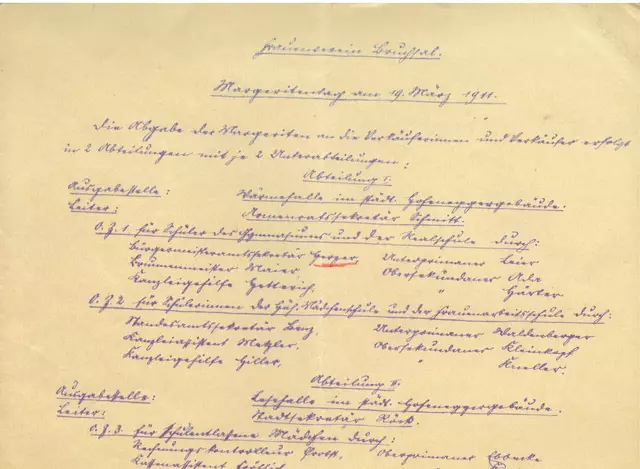 Frauenverein Bruchsal.
Margeritentag am 19. März 1911.
Die Abgabe der Margeriten an die Verkäuferinnen und Verkäufer erfolgt
in 2 Abteilungen mit je 2 Unterabteilungen:
Abteilung I:
Ausgabestelle: Wärmehalle im städt. Hoheneggergebäude.
Leiter: Armenratssekretär Schmitt.
O.Z. 1 für Schüler des Gymnasiums und der Realschule durch:
Bürgermeisteramtssekretär Unterprimaner Leier
Brunnenmeister Maier, Obersekundaner Ada
Kanzleigehilfe Hetterich, " Härter
O.Z. 2 für Schülerinnen der Höh. Mädchenschule und der Frauenarbeitsschule durch:
Standesamtssekretär Lenz, Unterprimaner Waldenberger
Kanzleiassistent Metzler, Obersekundaner Kleinkopf
Kanzleigehilfe Hiller, Kneller.
Abteilung II:
Ausgabestelle: Lesehalle im städt. Hoheneggergebäude.
Leiter: Stadtsekretär Röck.
O.Z. 3 für schulentlassene Mädchen durch:
Rechnungskontrolleur Probst, Oberprimaner Ebbecke